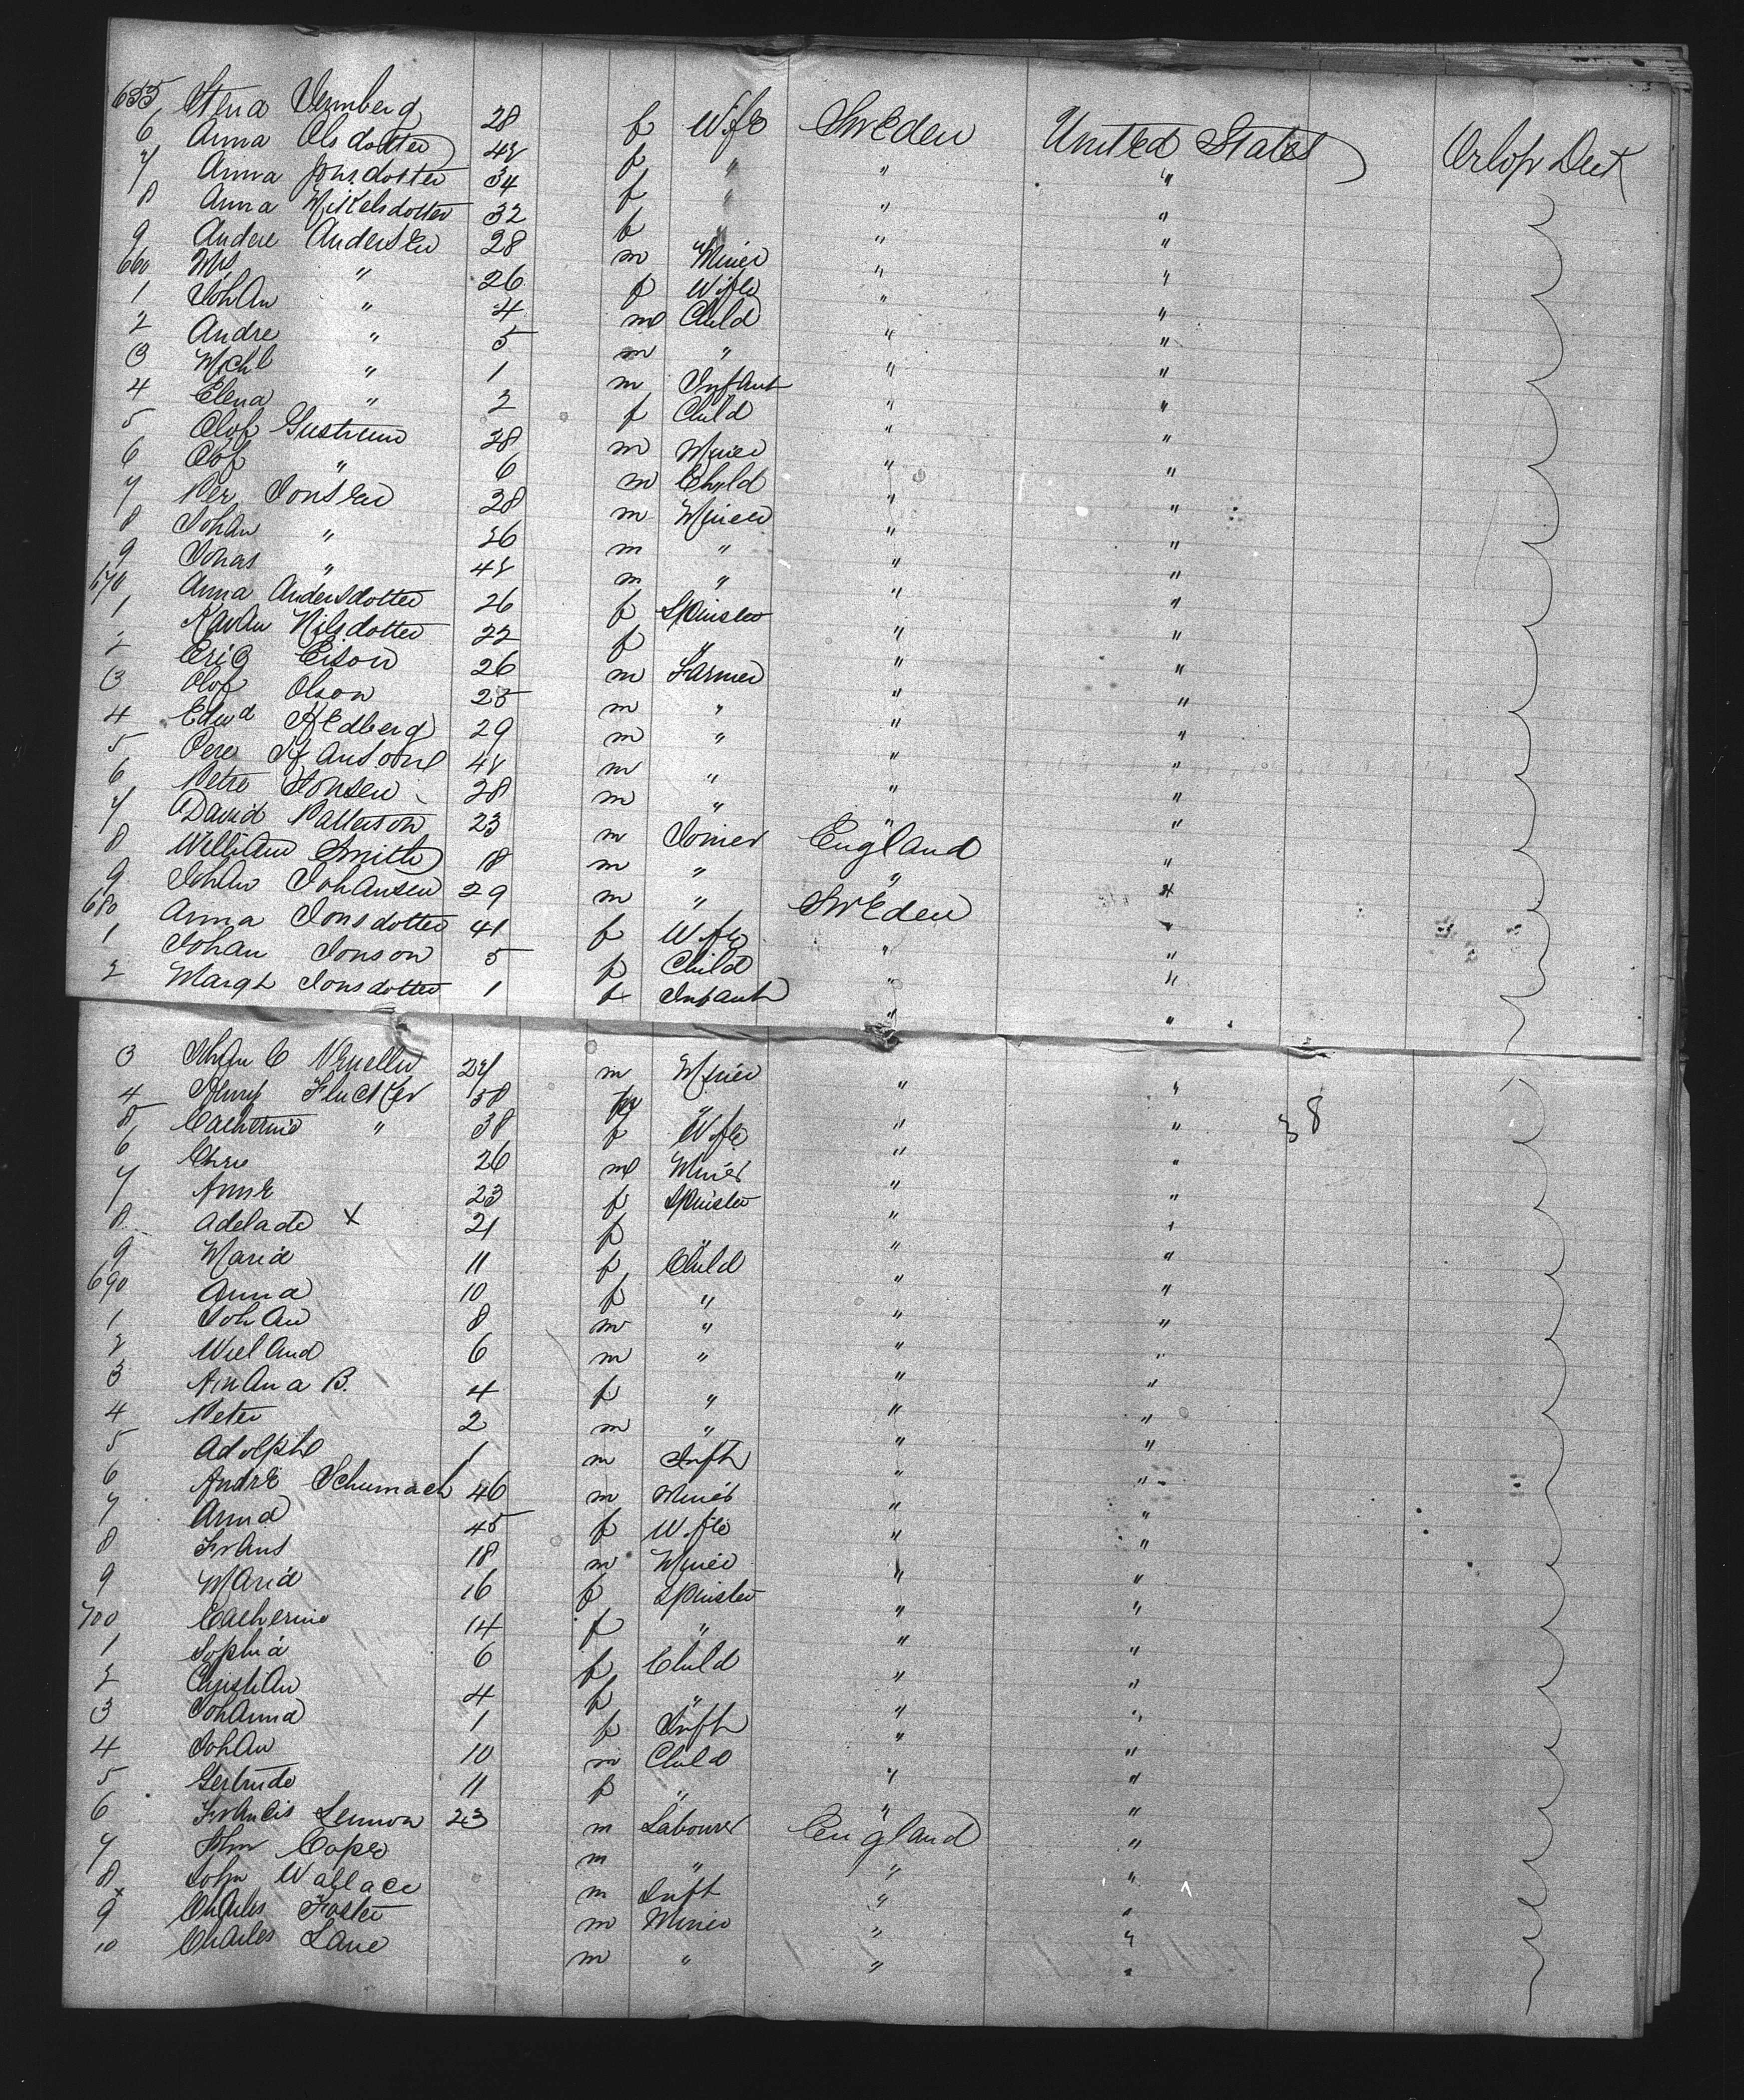 655 Stena Vermberg 28 f Wife Sweden United States Orlop Deck
6 Anna Olsdotter 42 f " " "
7 Anna Jonsdotter 34 f " " "
8 Anna Mikelsdotter 32 f " " "
9 Andere Andersen 28 m Miner " "
660 Mrs " 26 f Wife " "
1 Johan " 4 m Child " "
2 Andre " 5 m " " "
3 Michl " 1 m Infant " "
4 Elena " 2 f Child " "
5 Olof 28 m Miner " "
6 Olof " 6 m Child " "
7 Per Jonsen 28 m Miner " "
8 Johan " 26 m " " "
9 Jonas " 42 m " " "
670 Anna Andersdotter 26 f Spinster " "
1 Karan Nilsdotter 22 f " " "
2 Eric Eison 26 m Farmer " "
3 Olof Olson 25 m " " "
4 Edwd Hedberg 29 m " " "
5 Pere 42 m " " "
6 Petre Jonsen 28 m " " "
7 David Patterson 23 m Joiner England "
8 William Smith 18 m " " "
9 Johan Johansen 29 m " Sweden "
680 Anna Jonsdotter 41 f Wife " "
1 Johan Jonson 5 f Child " "
2 Margt Jonsdotter 1 f Infant " "
3 Johan C 27 m Miner " "
4 Henry Flucker 58 m " " " 38
5 Catherine " 38 f Wife " "
6 Chris 26 m Miner " "
7 Anne 23 f Spinster " "
8 Adelade X 21 f " " "
9 Maria 11 f Child " "
690 Anna 10 f " " "
1 Johan 8 m " " "
2 Wieland 6 m " " "
3 B. 4 f " " "
4 Peter 2 m " " "
5 Adolphe 1 m Inft " "
6 Andre Schumach 46 m Miner " "
7 Anna 45 f Wife " "
8 Frans 18 m Miner " "
9 Maria 16 f Spinster " "
700 Catherine 14 f " " "
1 Sophia 6 f Child " "
2 Christian 4 f " " "
3 Johanna 1 f Inft " "
4 Johan 10 m Child " "
5 Gertrude 11 f " " "
6 Francis Lennon 23 m Labourer England "
7 John Cope m " " "
8 John Wallace m Inft " "
9 Charles Foster m Miner " "
10 Charles Lane m " " "